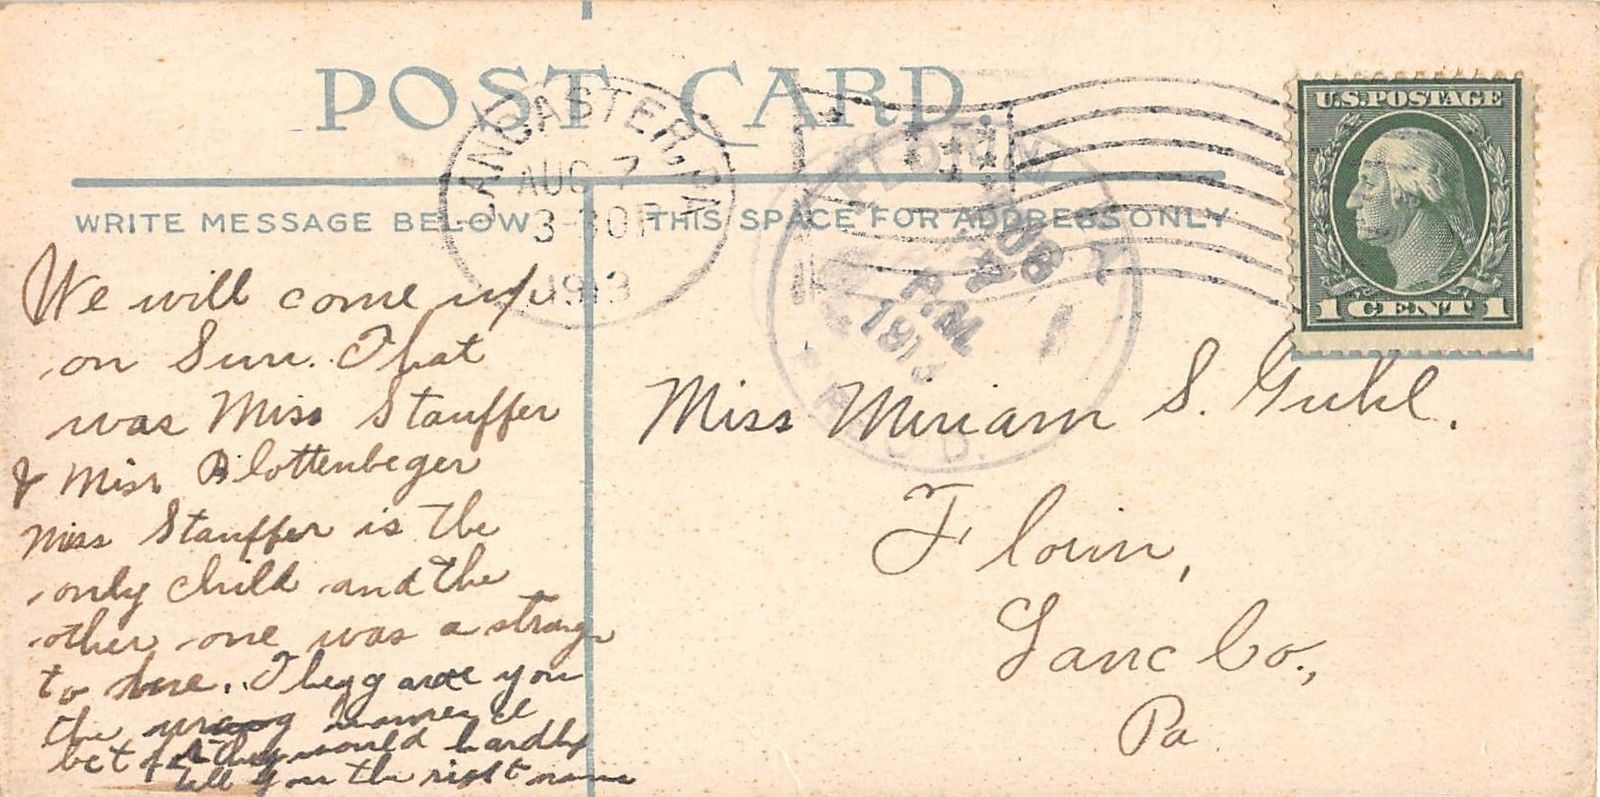 POST CARD.
LANCASTER, PA
AUG 7
3-30 P
1913
FLORIN PA
AUG
7
P.M.
1913
REC'D.
U.S. POSTAGE
1 CENT 1
WRITE MESSAGE BELOW
THIS SPACE FOR ADDRESS ONLY
We will come up
on Sun. That
was Miss Stauffer
& Miss Blottenbeger
Miss Stauffer is the
only child and the
other one was a strange
to here. They gave you
the wrong names I
bet for they would hardly
tell you the right name
Miss Miriam S. Guhl.
Florin,
Lanc Co.,
Pa